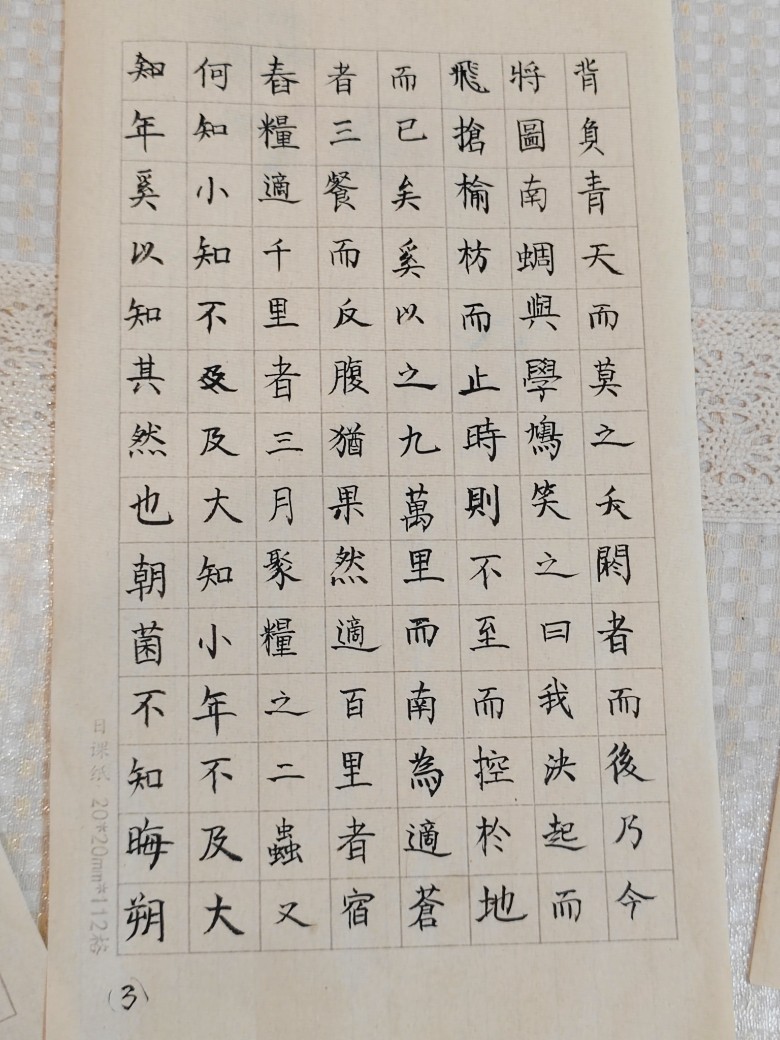 背負青天而莫之夭閼者而後乃今
將圖南蜩與學鳩笑之曰我決起而
飛搶榆枋而止時則不至而控於地
而已矣奚以之九萬里而南為適蒼
者三餐而反腹猶果然適百里者宿
舂糧適千里者三月聚糧之二蟲又
何知小知不及及大知小年不及大
知年奚以知其然也朝菌不知晦朔
日课纸 20*20mm*112格
(3)